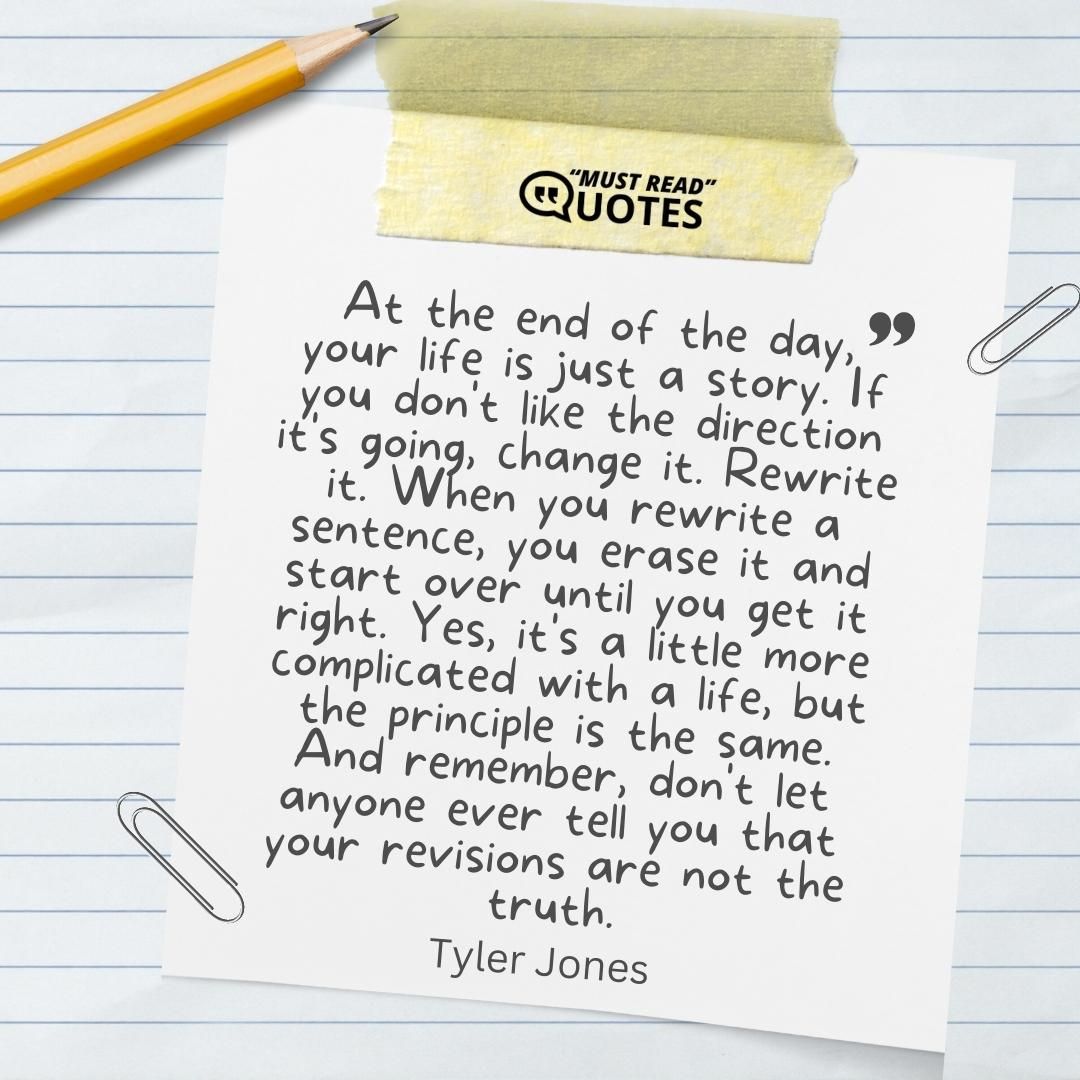 “MUST READ”
QUOTES
At the end of the day, ”
your life is just a story. If
you don't like the direction
it's going, change it. Rewrite
it. When you rewrite a
sentence, you erase it and
start over until you get it
right. Yes, it's a little more
complicated with a life, but
the principle is the same.
And remember, don't let
anyone ever tell you that
your revisions are not the
truth.
Tyler Jones